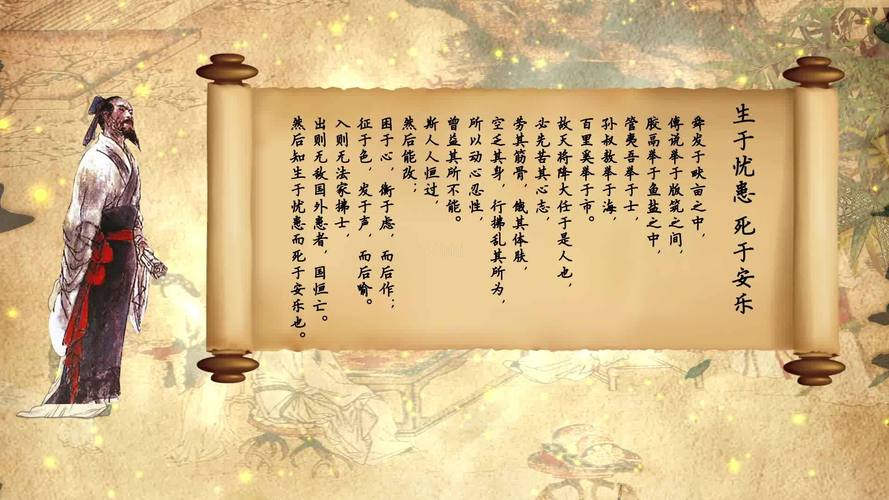 生于忧患 死于安乐
舜发于畎亩之中，
傅说举于版筑之间，
胶鬲举于鱼盐之中，
管夷吾举于士，
孙叔敖举于海，
百里奚举于市。
故天将降大任于是人也，
必先苦其心志，
劳其筋骨，饿其体肤，
空乏其身，行拂乱其所为，
所以动心忍性，
曾益其所不能。
斯人人恒过，
然后能改；
困于心，衡于虑，而后作；
征于色，发于声，而后喻。
入则无法家拂士，
出则无敌国外患者，国恒亡。
然后知生于忧患而死于安乐也。